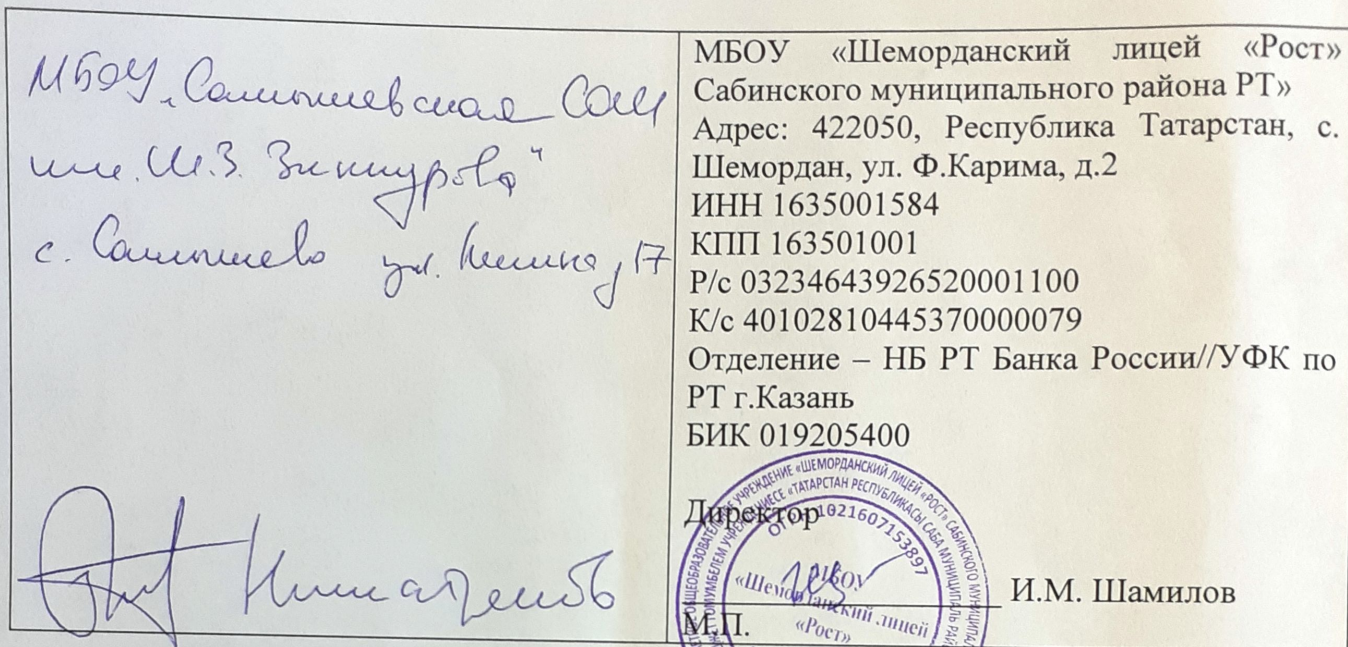 МБОУ „Самышевская СОШ
им. Ш.З. Зиннурова“
с. Самышево ул. Ленина, 17
МБОУ «Шеморданский лицей «Рост»
Сабинского муниципального района РТ»
Адрес: 422050, Республика Татарстан, с.
Шемордан, ул. Ф.Карима, д.2
ИНН 1635001584
КПП 163501001
Р/с 03234643926520001100
К/с 40102810445370000079
Отделение – НБ РТ Банка России//УФК по
РТ г.Казань
БИК 019205400
Директор
И.М. Шамилов
М.П.
ОБЩЕОБРАЗОВАТЕЛЬНОЕ УЧРЕЖДЕНИЕ «ШЕМОРДАНСКИЙ ЛИЦЕЙ «РОСТ» САБИНСКОГО
«ТАТАРСТАН РЕСПУБЛИКАСЫ САБА МУНИЦИПАЛЬ
ОГРН 1021607153897
МБОУ
«Шеморданский лицей
«Рост»